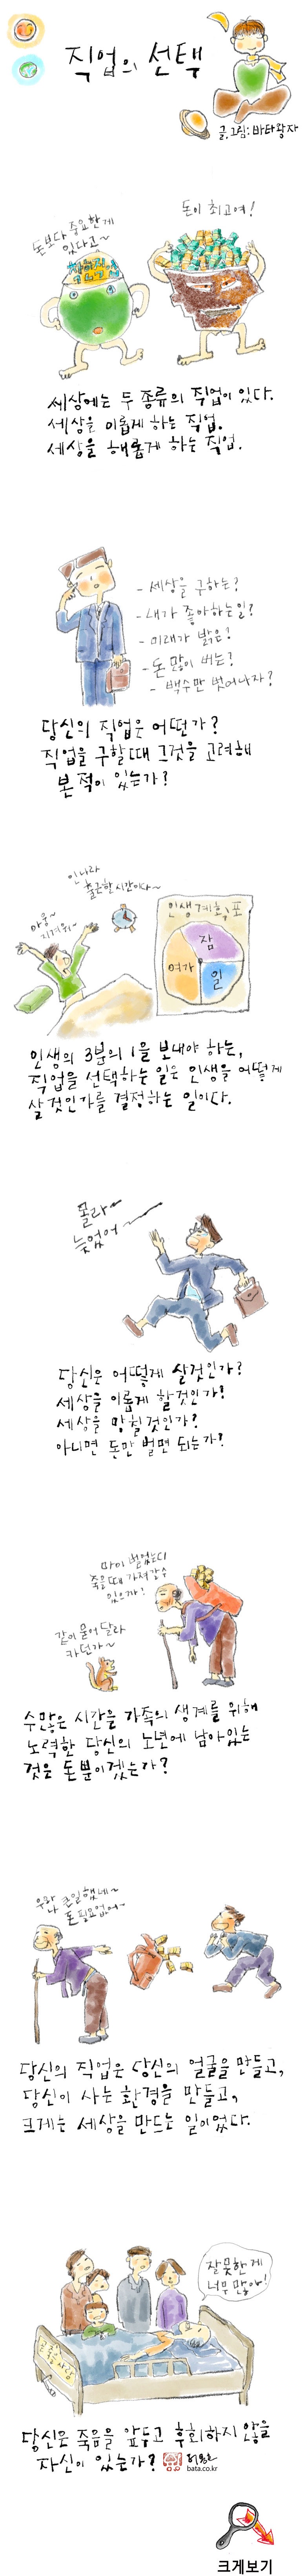 직업의 선택
글,그림:바타왕자
돈보다 중요한게
있다고~
돈이 최고여!
세상에는 두 종류의 직업이 있다.
세상을 이롭게 하는 직업.
세상을 해롭게 하는 직업.
- 세상을 구하는?
- 내가 좋아하는일?
- 미래가 밝은?
- 돈 많이 버는?
- 백수만 벗어나자?
당신의 직업은 어떤가?
직업을 구할때 그것을 고려해
본적이 있는가?
인나라
출근할 시간이다~
아웅~
지겨워~
인생계획표
잠
여가
일
인생의 3분의 1을 보내야 하는,
직업을 선택하는 일은 인생을 어떻게
살것인가를 결정하는 일이다.
몰라~
늦었어
당신은 어떻게 살것인가?
세상을 이롭게 할것인가?
세상을 망칠것인가?
아니면 돈만 벌면 되는가?
마이 벌었는디
죽을때 가져갈수
있으까!
같이 묻어달라
카던가~
수많은 시간을 가족의 생계를 위해
노력한 당신의 노년에 남아있는
것은 돈뿐이겠는가?
우와
나 큰일했네~
돈 필요없어~
당신의 직업은 당신의 얼굴을 만들고,
당신이 사는 환경을 만들고,
크게는 세상을 만드는 일이었다.
잘못한게
너무 많아!
당신은 죽음을 앞두고 후회하지 않을
자신이 있는가?
bata.co.kr
크게보기